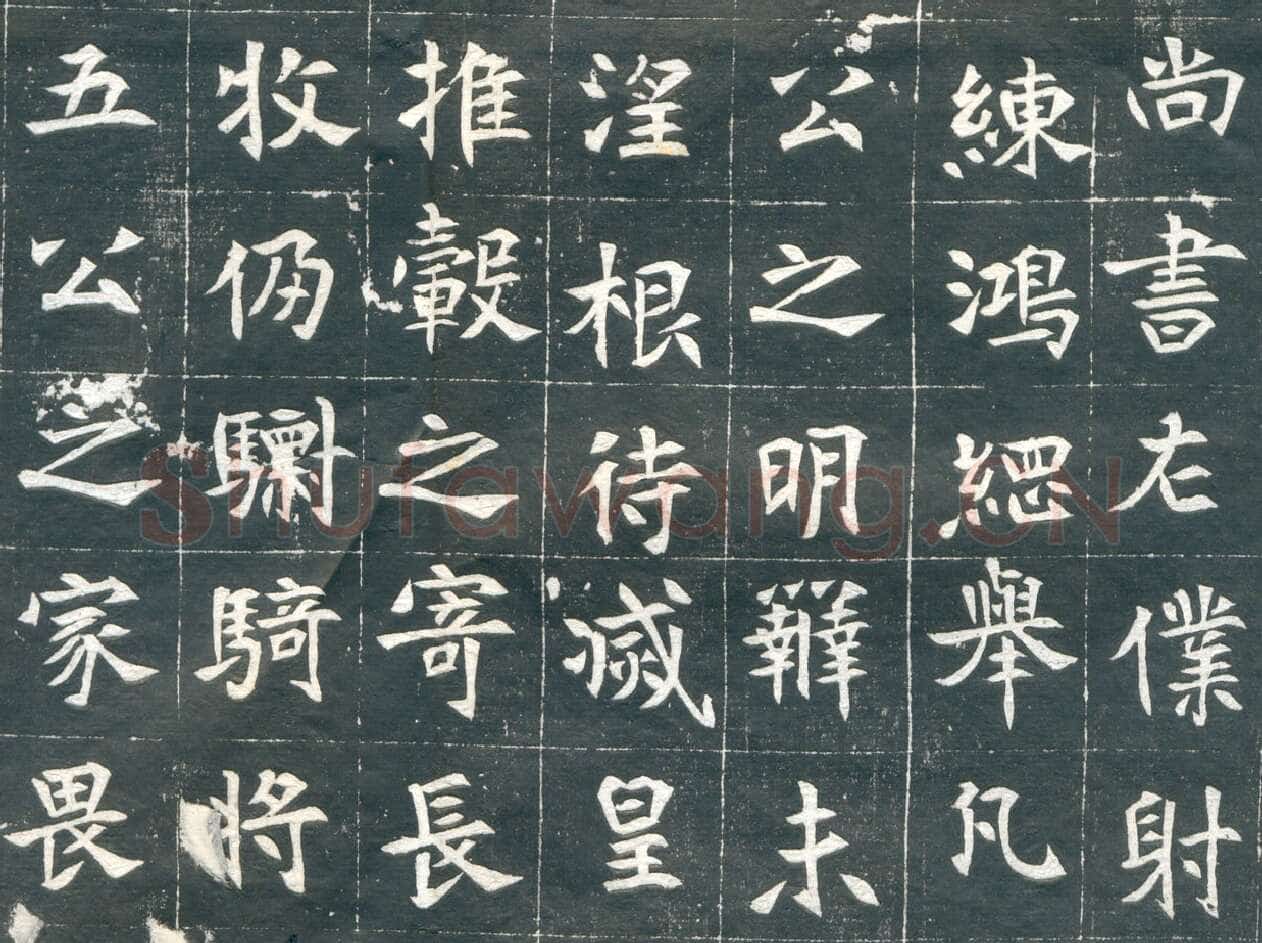 尚書左僕射
練鴻綱舉凡
公之明辯未
淫根待滅皇
推轂之寄長
牧仍騎將
五公之家畏
Shufawang.CN